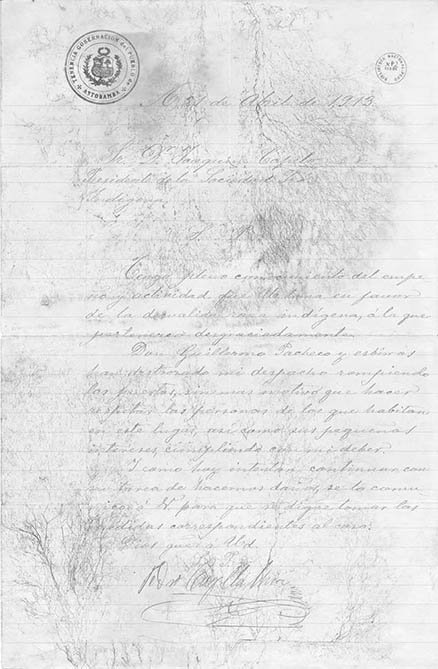 TENENCIA GOBERNACION del PUEBLO de
ATTOBAMBA
de Abril de 1913.
Sr. Dr. Joaquin Capelo
Presidente de la Sociedad Pro
Indigena
S. P.
Tengo pleno conocimiento del empe
ño y actividad que Ud toma en favor
de la desvalida raza indígena, a la que
pertenezco desgraciadamente.
Don Guillermo Pacheco y esbirros
han destrozado mi despacho rompiendo
las puertas, sin mas motivo que hacer
respetar las personas de los que habitan
en este lugar, asi como sus pequeños
intereses, cumpliendo con mi deber.
I como hoy intentan continuar con
su tarea de hacernos daños, se lo comu
nico á U. para que se digne tomar las
medidas correspondientes al caso.
Dios gue á Ud.